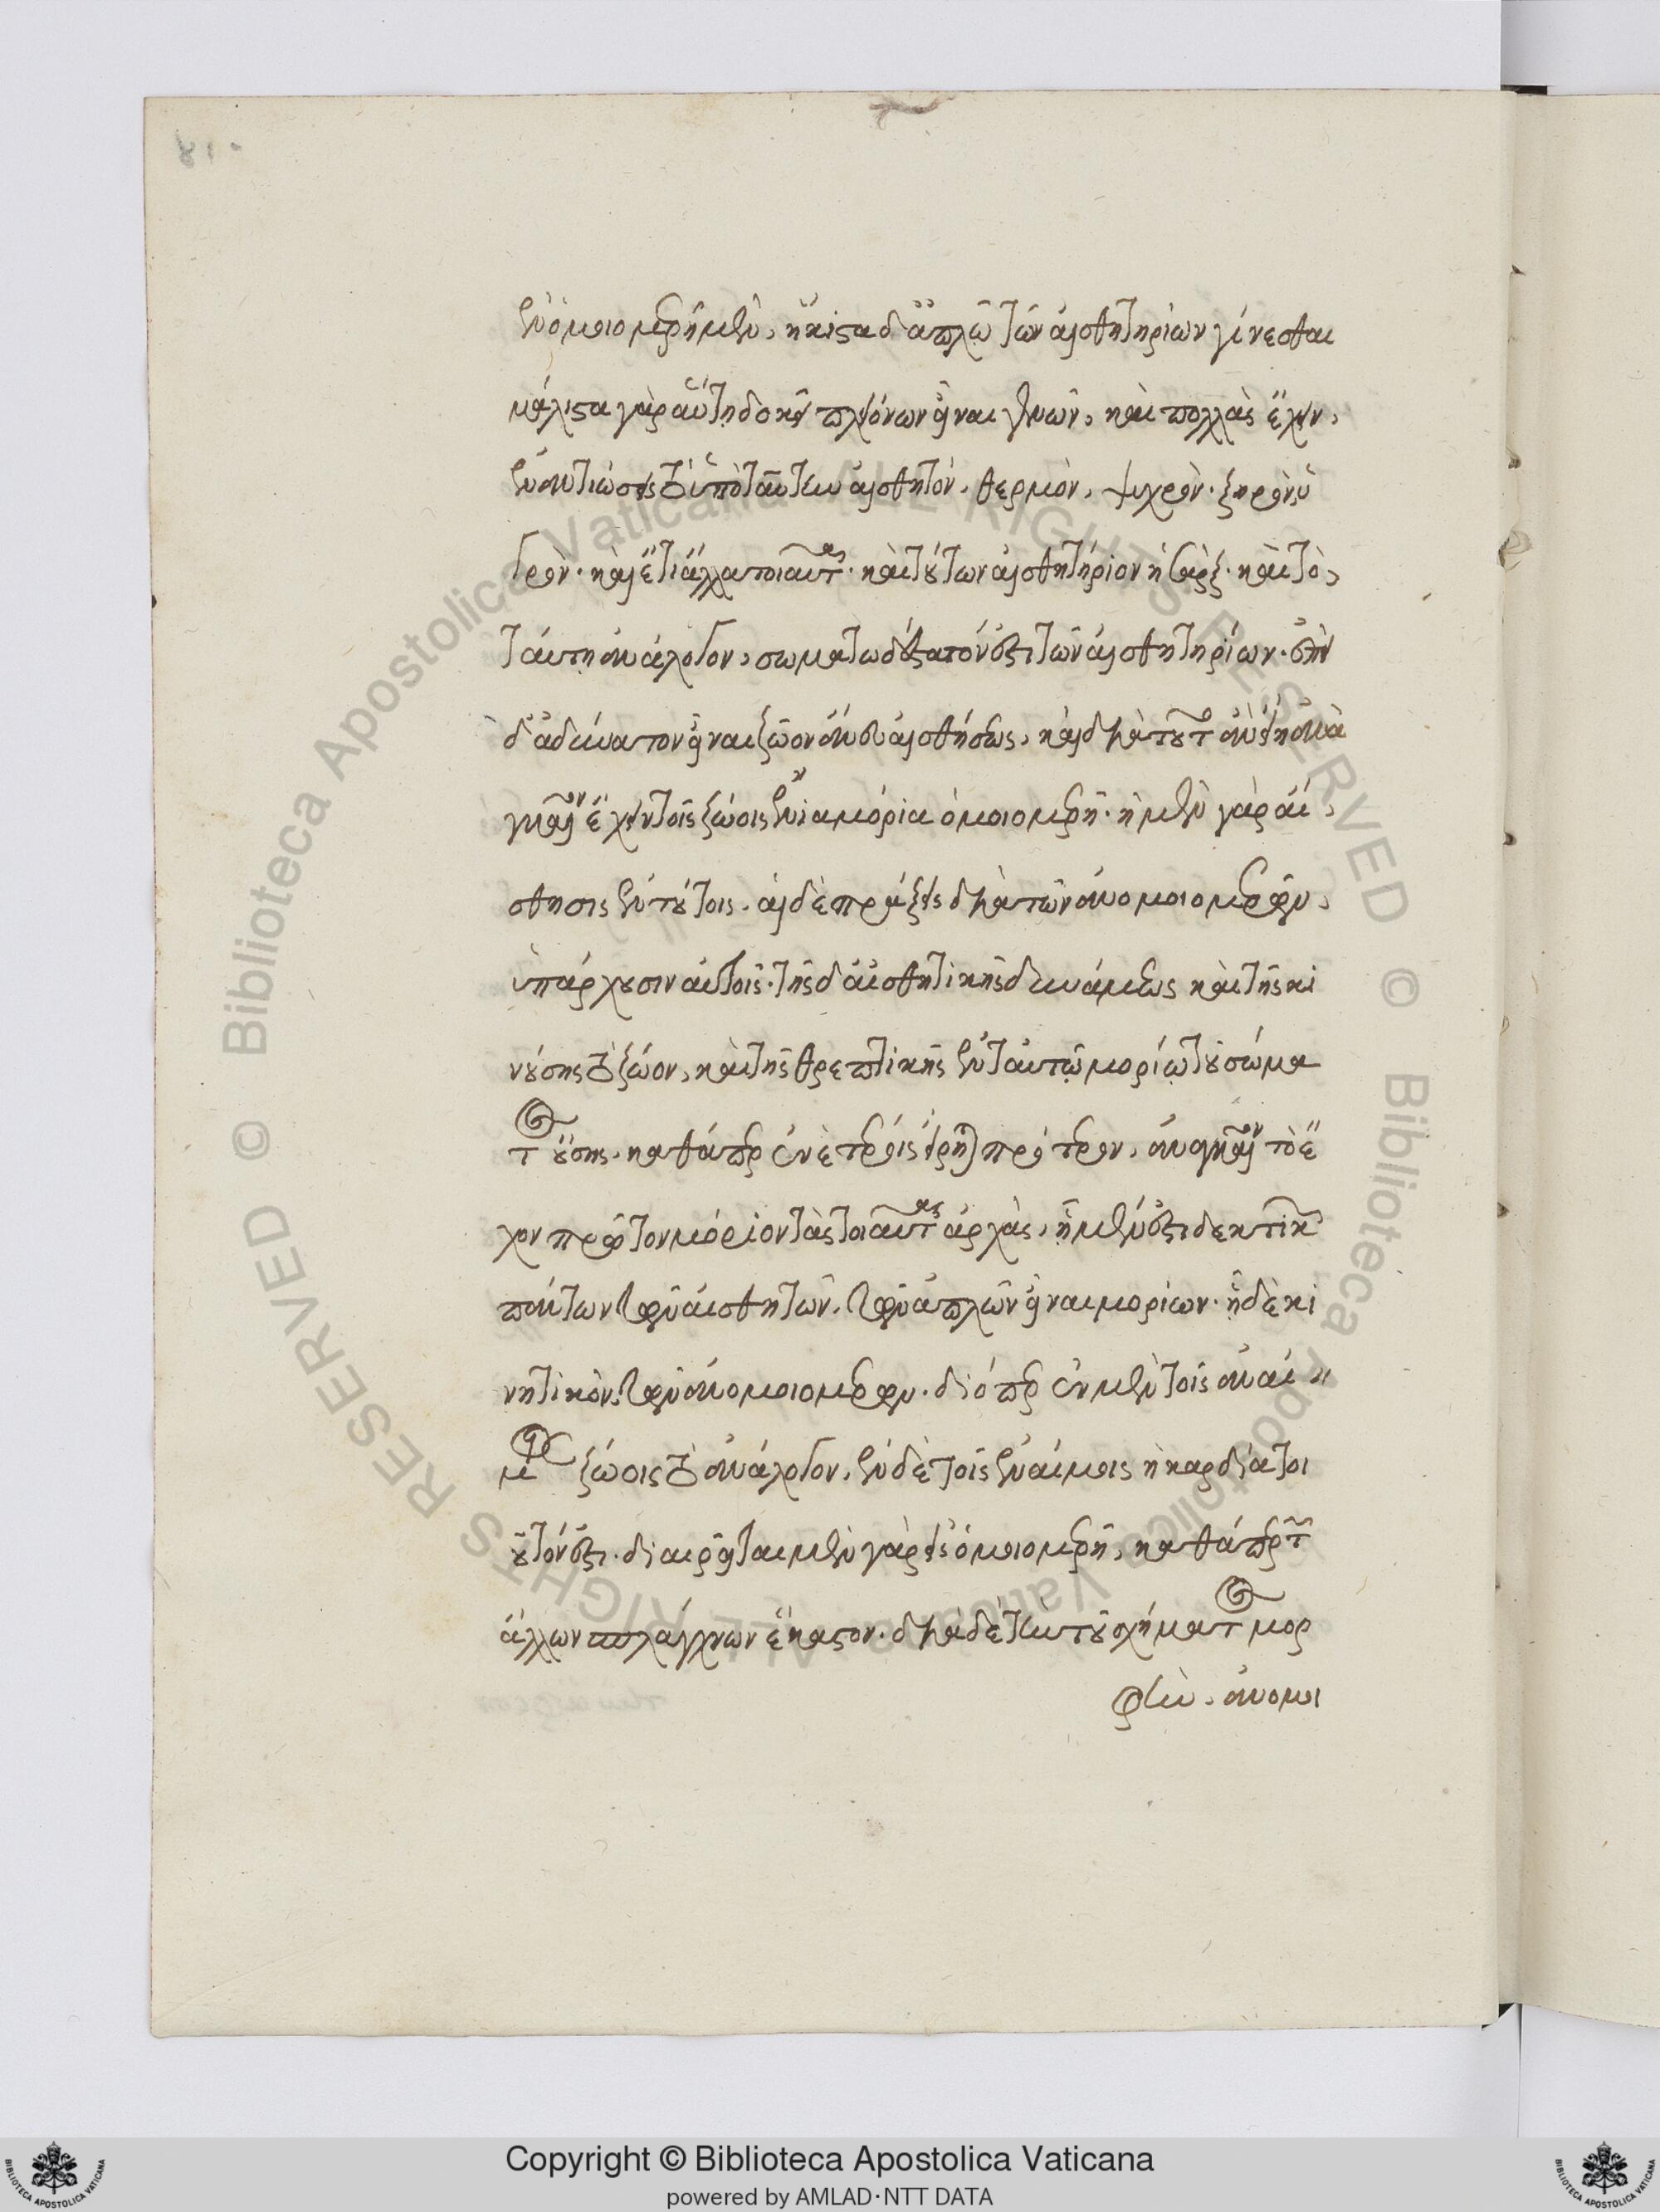 ἐν ὁμοιομερῆ μὲν, ἥκιστα δ' ἁπλῶ τῶν αἰσθητηρίων γίνεσθαι
μάλιστα γὰρ αὕτη δοκεῖ πλειόνων εἶναι γενῶν, καὶ πολλὰς ἔχειν,
ἐναντιώσεις τὸ ὑπὸ ταύτην αἰσθητόν. θερμὸν, ψυχρὸν. ξηρὸν, ὑ
γρὸν. καὶ εἴ τι ἄλλα τοιαῦτα. καὶ τούτων αἰσθητήριον ἡ σὰρξ. καὶ τὸ,
ταύτῃ ἀνάλογον, σωματωδέστατόν ἐστι τῶν αἰσθητηρίων. ἐπεὶ
δ' ἀδύνατον εἶναι ζῶον ἄνευ αἰσθήσεως, καὶ διὰ τοῦτο ἂν εἴη ἀνα
γκαῖον ἔχειν τοῖς ζώοις ἔνια μόρια ὁμοιομερῆ. ἡ μὲν γὰρ αἴ,
σθησις ἐν τούτοις. αἱ δὲ πράξεις διὰ τῶν ἀνομοιομερῶν,
ὑπάρχουσιν αὐτοῖς. τῆς δ' αἰσθητικῆς δυνάμεως καὶ τῆς κι
νούσης τὸ ζῶον, καὶ τῆς θρεπτικῆς ἐν ταυτῶ μορίω τοῦ σώμα
τος οὔσης. καθάπερ ἐν ἑτέροις εἴρηται πρότερον, ἀναγκαῖον τὸ ἔ
χον πρῶτον μόριον τὰς τοιαύτας ἀρχὰς, ᾗ μέν ἐστι δεκτικὸν
πάντων τῶν αἰσθητῶν, τῶν ἁπλῶν εἶναι μορίων. ᾗ δὲ κι
νητικὸν, τῶν ἀνομοιομερῶν. διόπερ ἐν μὲν τοῖς ἀναί
μοις ζώοις τὸ ἀνάλογον, ἐν δὲ τοῖς ἐναίμοις ἡ καρδία τοι
οῦτόν ἐστι. διαιρεῖται μὲν γὰρ εἰς ὁμοιομερῆ, καθάπερ τῶν
ἄλλων σπλάγχνων ἕκαστον. διὰ δὲ τὴν τοῦ σχήματος μορ
φὴν. ἀνομοι
Copyright © Biblioteca Apostolica Vaticana
powered by AMLAD·NTT DATA
© Biblioteca Apostolica Vaticana ALL RIGHTS RESERVED © Biblioteca Apostolica Vaticana ALL RIGHTS RESERVED